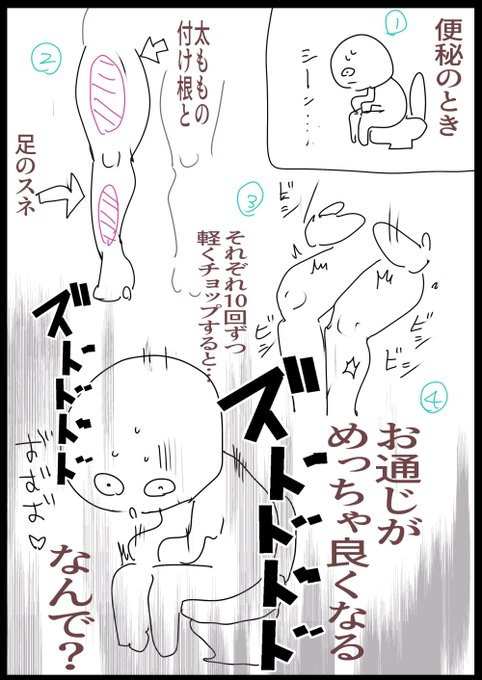 ①
便秘のとき
シーン…
②
太ももの
付け根と
足のスネ
③
ビシ
それぞれ10回ずつ
軽くチョップすると…
ビシ
ビシ
④
お通じが
めっちゃ良くなる
ズトドドド
ズトドドド
なんで？